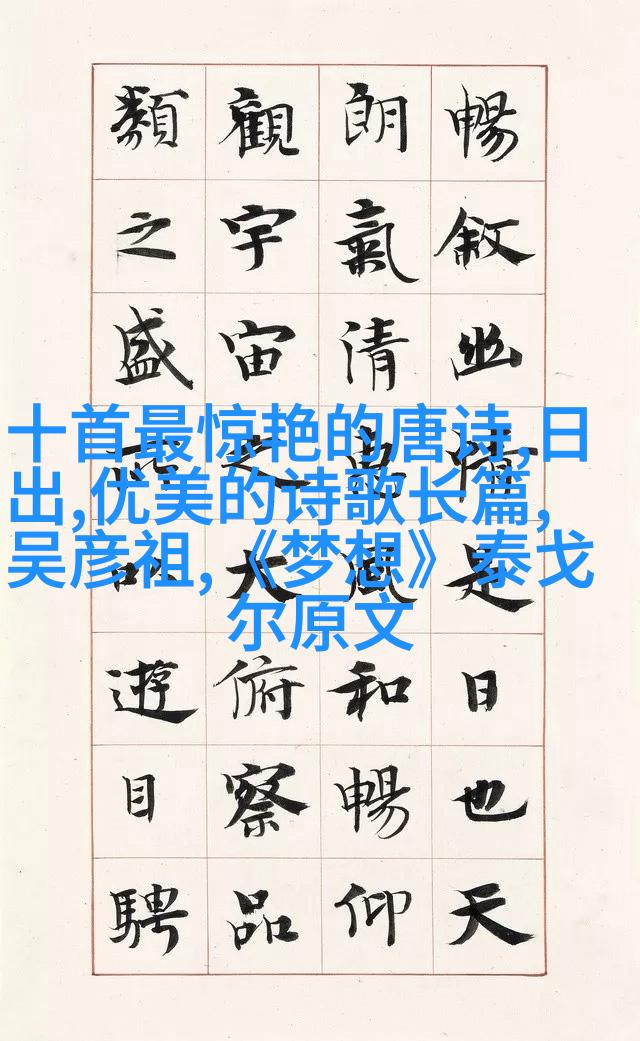 暢敘幽情是日也天
朗氣清惠風和暢仰
觀宇宙之大俯察品
類之盛所以遊目騁
十首最惊艳的唐诗,日
出,优美的诗歌长篇,
吴彦祖,《梦想》泰戈
尔原文